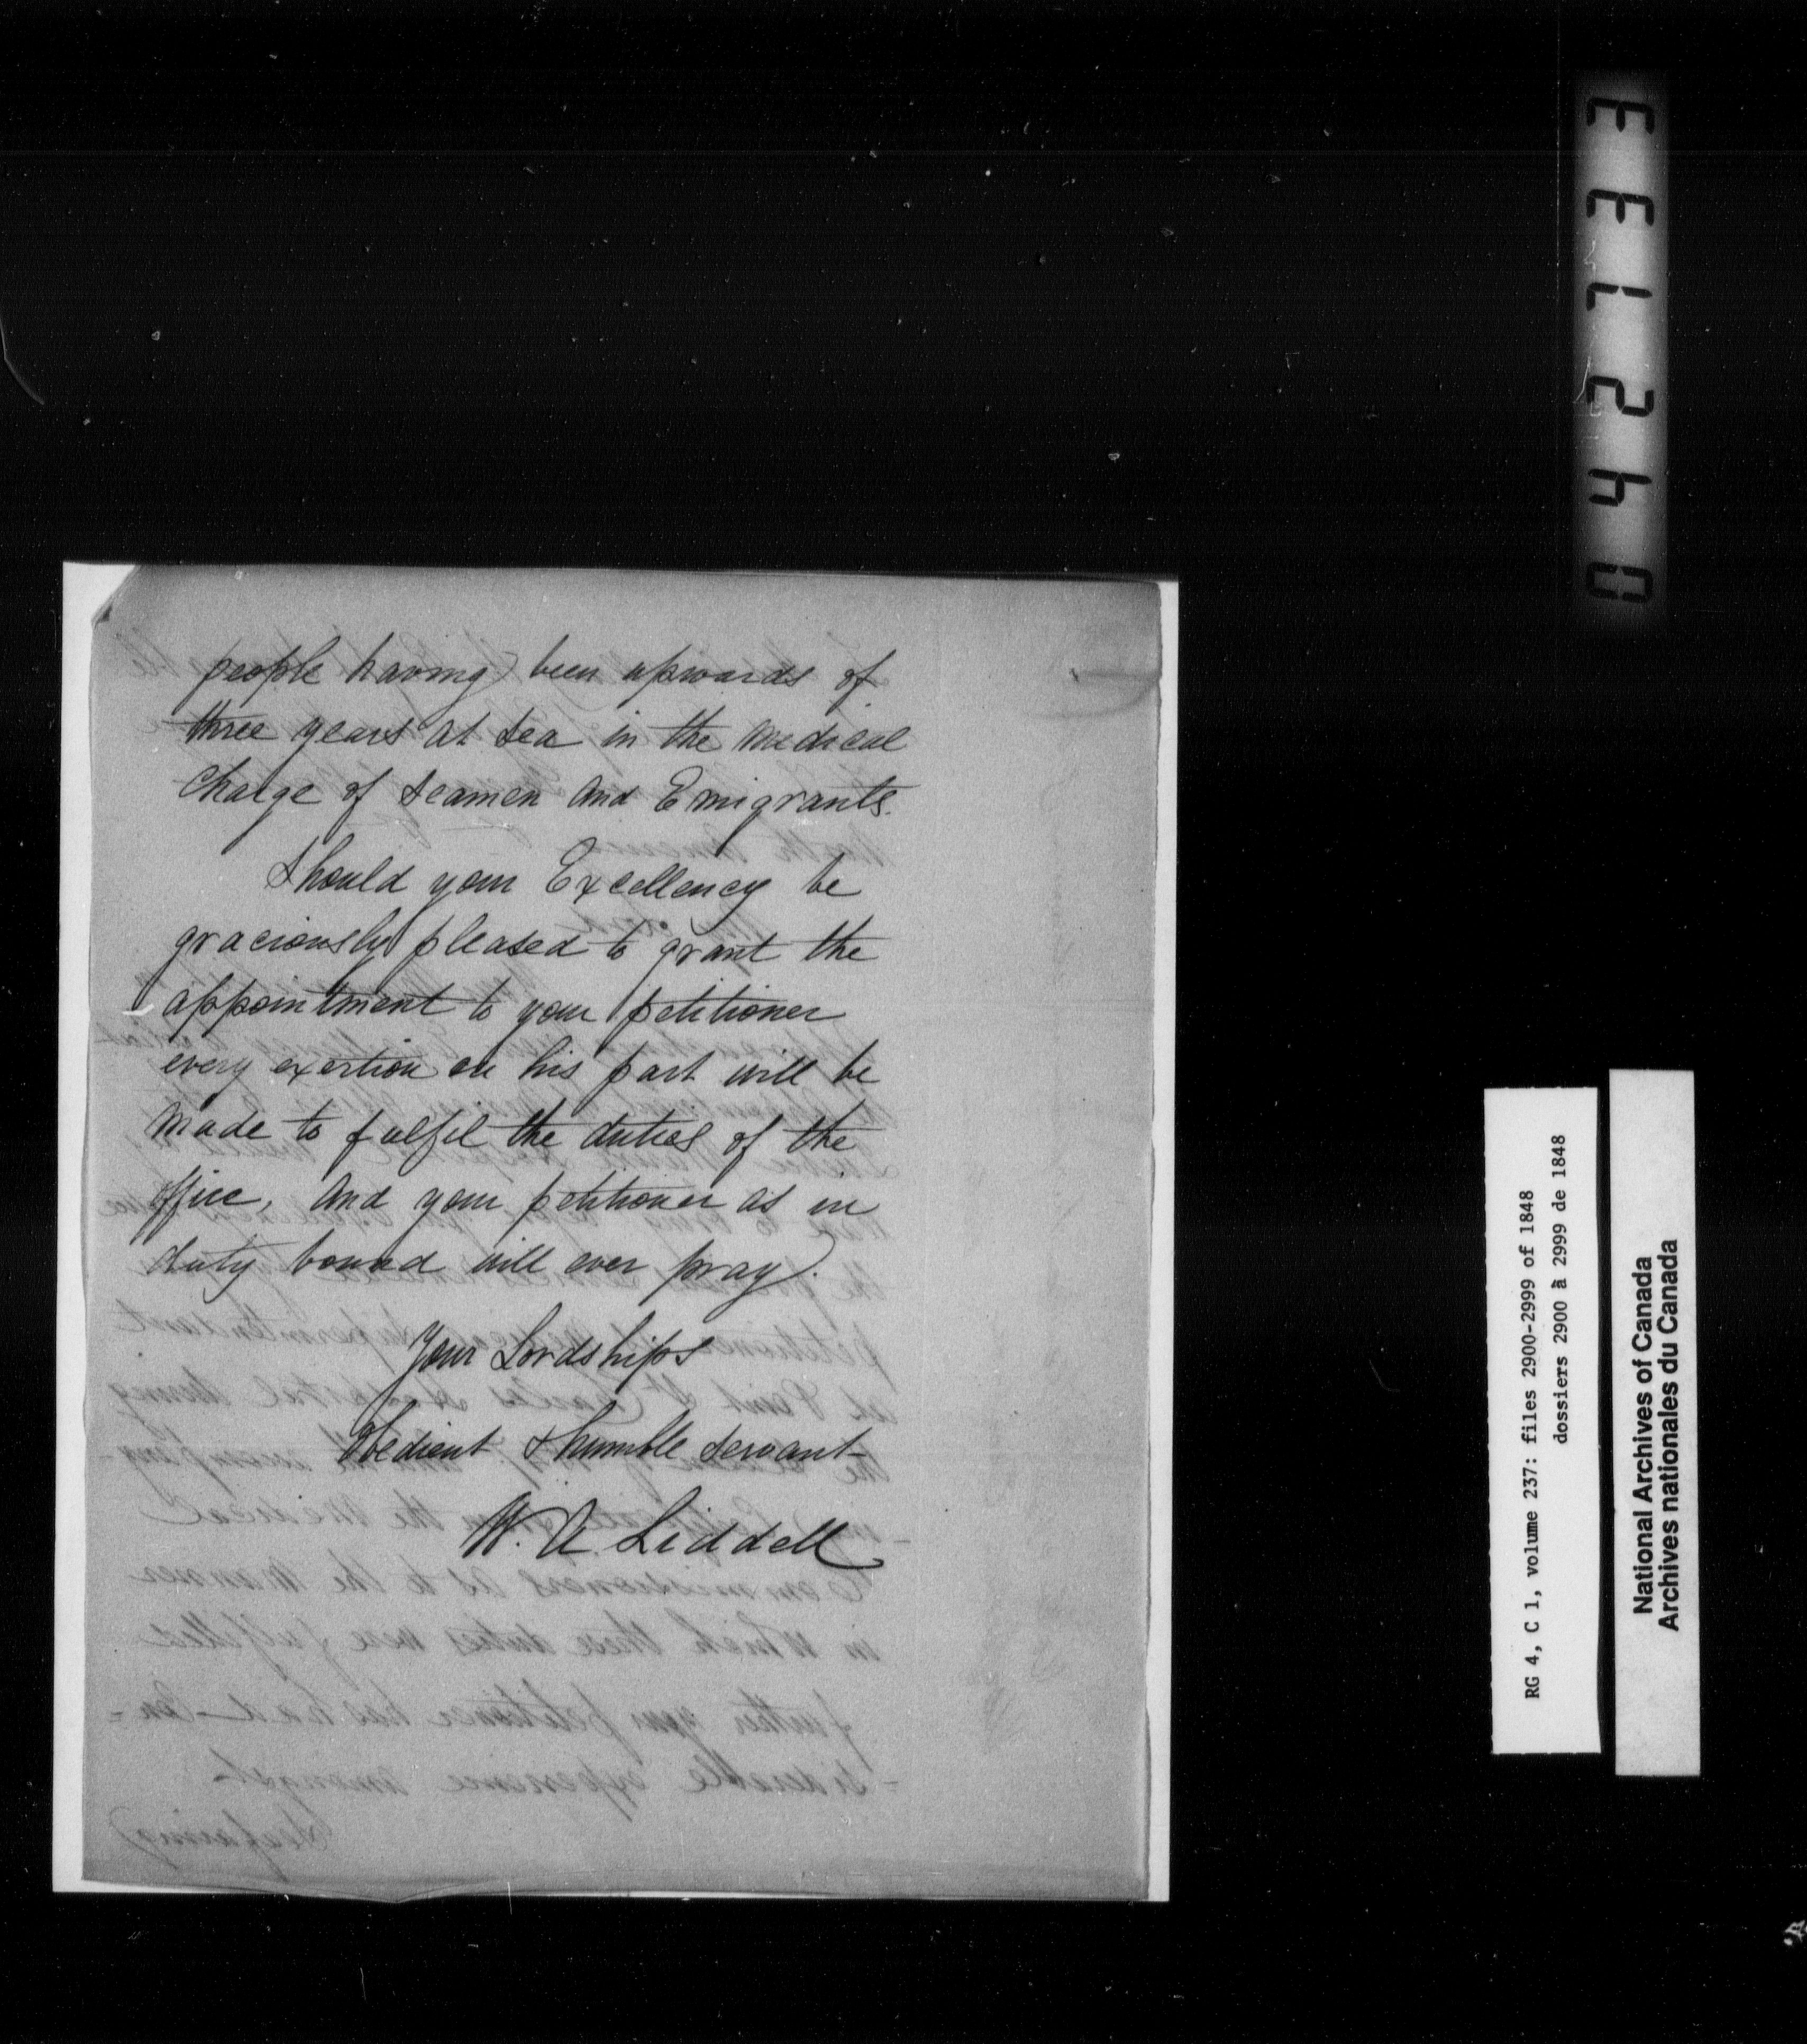 people having been upwards of
three years at sea in the medical
charge of seamen and Emigrants.
Should your Excellency be
graciously pleased to grant the
appointment to your petitioner
every exertion on his part will be
made to fulfil the duties of the
office, and your petitioner as in
duty bound will ever pray.
Your Lordships
Obedient & humble servant
W. A. Liddell
042733
RG 4, C 1, volume 237: files 2900-2999 of 1848
dossiers 2900 à 2999 de 1848
National Archives of Canada
Archives nationales du Canada